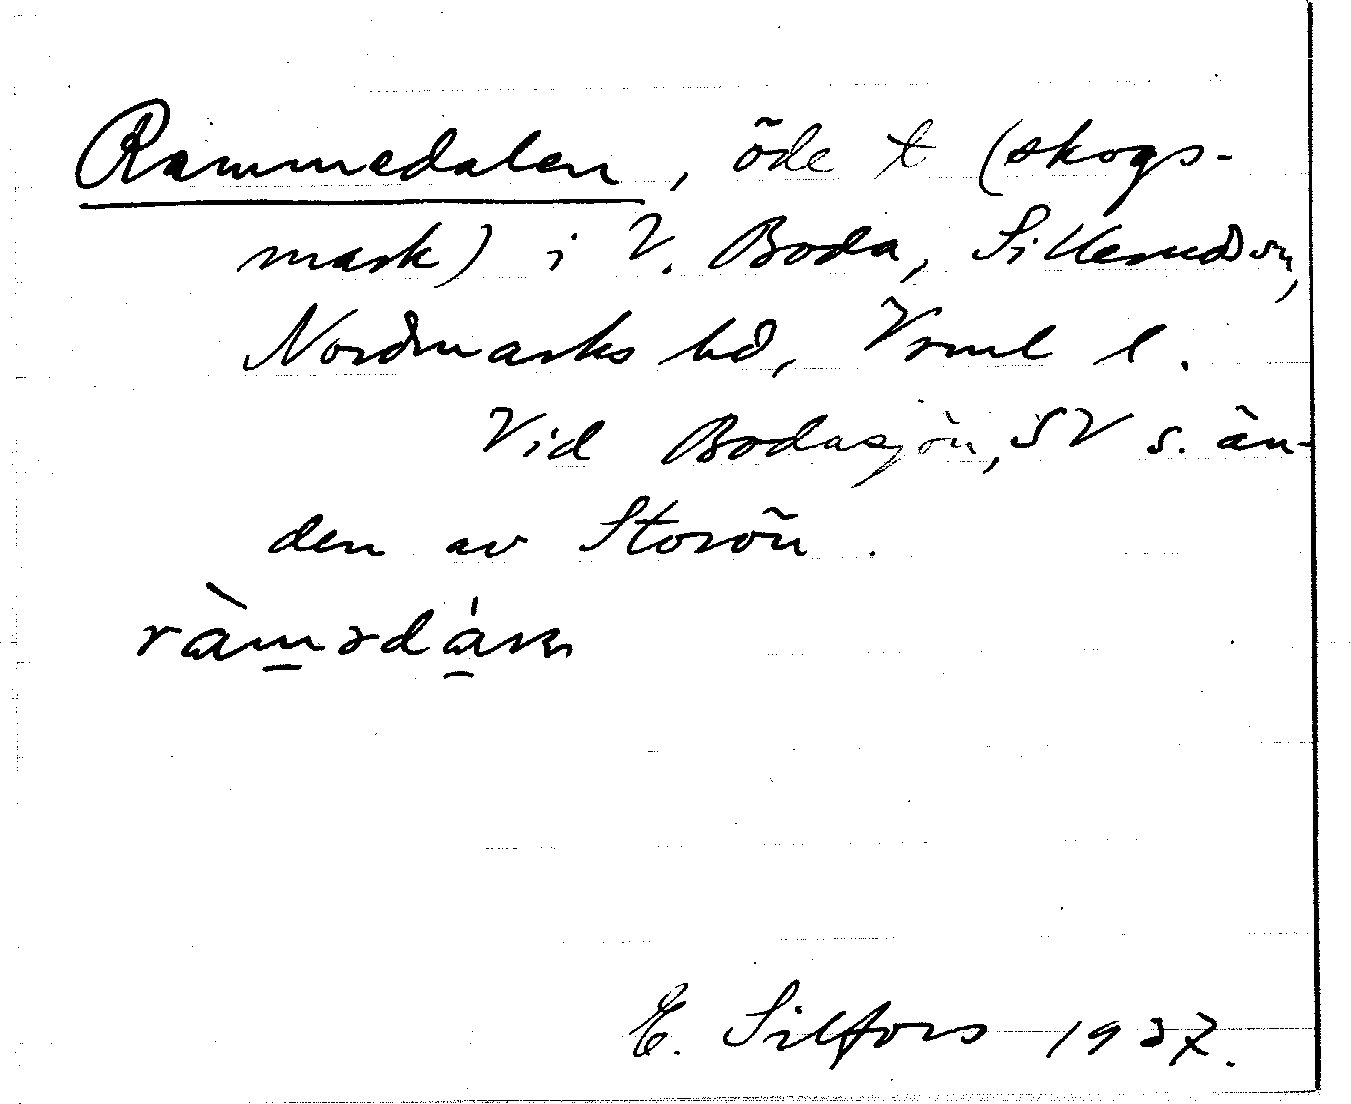 Rammedalen, öde t (skogs-
mark) i V. Boda, Sillerud sn,
Nordmarks hd, Vrml l.
Vid Bodasjön, SV s. än-
den av Storön.
E. Silfors 1937.